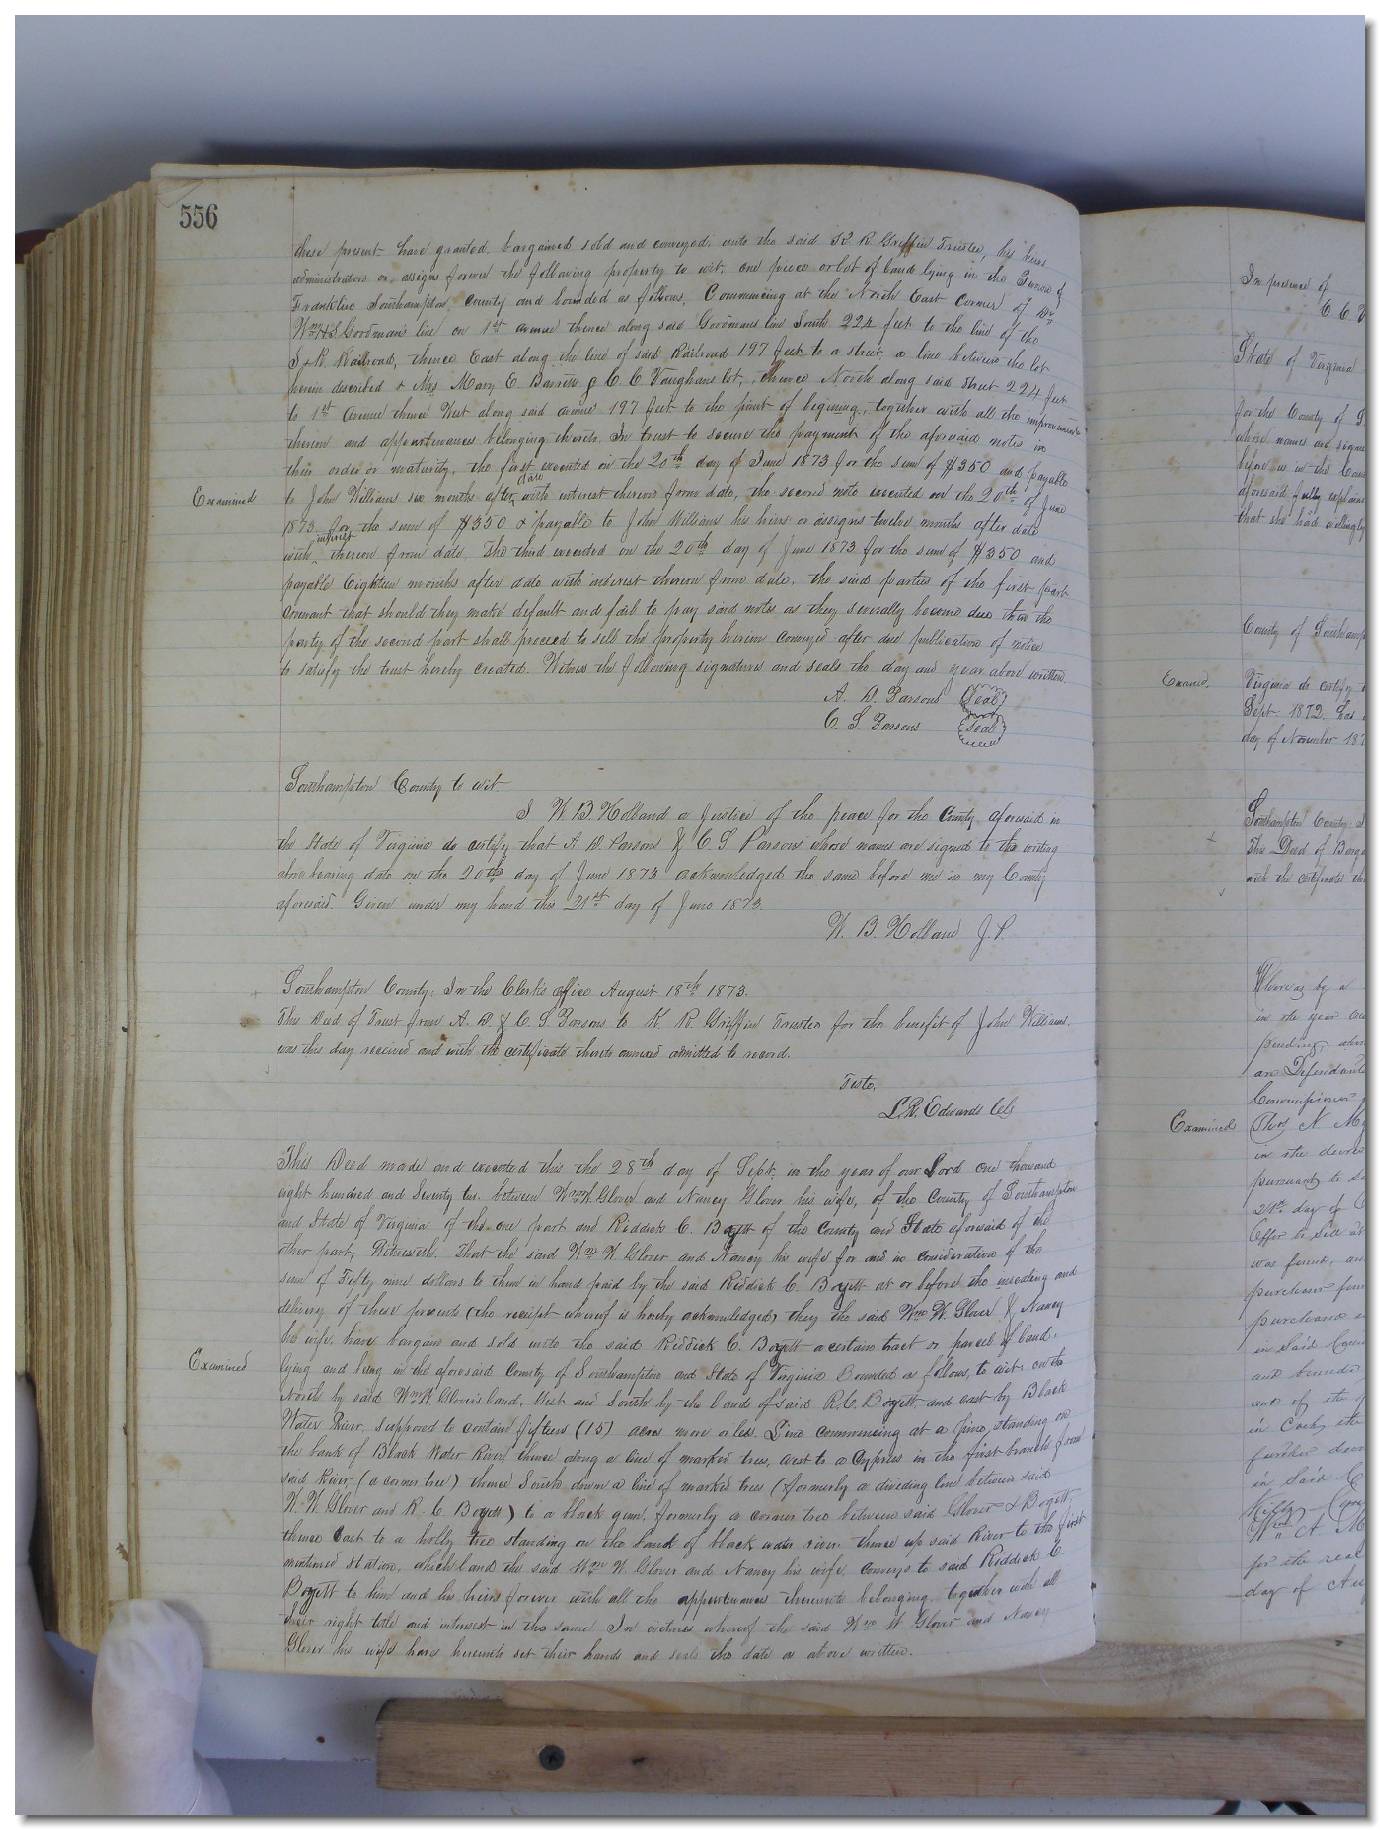 556
these present have granted, bargained sold and conveyed, unto the said K. R. Griffin Trustee, his heirs
administrators or assigns forever the following property to wit, one piece or lot of land lying in the Town of
Franklin Southampton County and bounded as follows, Commencing at the North East Corner of Dr
Wm H S Goodman's line on 1st avenue thence along said Goodmans line South 224 feet to the line of the
S & R Railroad, thence East along the line of said Railroad 197 feet to a street, a line between the lot
herein described & Mrs Mary E. Barrett & C. C. Vaughans lot, thence North along said Street 224 feet
to 1st Avenue thence West along said avenue 197 feet to the point of begining, together with all the improvements
thereon and appurtenances belonging thereto. In trust to secure the payment of the aforesaid notes in
their order or maturity, the first executed on the 20th day of June 1873 for the sum of $350 and payable
Examined
to John Williams six months after date with interest thereon from date, the second note executed on the 20th of June
1873 for the sum of $350 & payable to John Williams his heirs or assigns twelve months after date
with interest thereon from date. The third executed on the 20th day of June 1873 for the sum of $350 and
payable Eighteen months after date with interest thereon from date. the said parties of the first part
covenant that should they make default and fail to pay said notes as they severally become due then the
party of the second part shall proceed to sell the property herein conveyed after due publication of notice
to satisfy the trust hereby created. Witness the following signatures and seals the day and year above written.
A. D. Parsons Seal
C. S. Parsons Seal
Southampton County to wit
I W. B. Holland a Justice of the peace for the County aforesaid in
the State of Virginia do certify that A D. Parsons & C. S Parsons whose names are signed to the writing
above bearing date on the 20th day of June 1873 acknowledged the same before me in my County
aforesaid. Given under my hand this 21st day of June 1873.
W. B. Holland J. P.
Southampton County: In the Clerk's office August 18th 1873.
This Deed of Trust from A. D. & C. S Parsons to K. R. Griffin Trustee for the benefit of John Williams.
was this day received and with the certificate thereto annexed admitted to record.
Teste,
L. R. Edwards Clk
This Deed made and executed this the 28th day of Sept. in the year of our Lord one thousand
eight hundred and Seventy two. between Wm W. Glover and Nancy Glover his wife, of the County of Southampton
and State of Virginia of the one part and Riddick C. Boyett of the County and State aforesaid of the
other part, Witnesseth. That the said Wm W Glover and Nancy his wife for and in consideration of the
sum of Fifty nine dollars to them in hand paid by the said Riddick C. Boyett at or before the unsealing and
delivery of these presents (the receipt whereof is hereby acknowledged) they the said Wm W. Glover & Nancy
his wife, have bargain and sold unto the said Riddick C. Boyett a certain tract or parcel of land,
Examined
lying and being in the aforesaid County of Southampton and State of Virginia Bounded as follows, to wit: on the
North by said Wm W Glover's land, West and South by the land of said R. C. Boyett and east by Black
Water River, supposed to contain fifteen (15) acres more or less. Line commencing at a pine, standing on
the bank of Black Water River thence along a line of marked trees, west to a Cypress in the first branch from
said River (a corner tree) thence South down a line of marked trees (formerly a dividing line between said
W. W. Glover and R. C. Boyett) to a black gum, formerly a corner tree between said Glover & Boyett,
thence East to a holly tree standing on the bank of black water river, thence up said River to the first
mentioned station, which land the said Wm W Glover and Nancy his wife, conveys to said Riddick C
Boyett to him and his heirs forever with all the appurtenances thereunto belonging, together with all
their right title and interest in the same In witness whereof the said Wm W Glover and Nancy
Glover his wife have hereunto set their hands and seals the date as above written.
In presence of
C. C. V
State of Virginia
for the County of S
whose names are signed
before us in the
aforesaid fully explained
that she had willingly
County of Southamp
Examd.
Virginia do certify
Sept. 1872. has
day of November 187
Southampton County
This Deed of Barga
with the certificates the
Whereas by a
in the year
pending,
an Defendants
Commissioner
Examined
Thos N. M
in the decree
pursuant to
21st day of
offer to sell
was found, an
purchaser
purchase
in said
and bounded
in Cash, the
further
in said C
for the real
day of Au